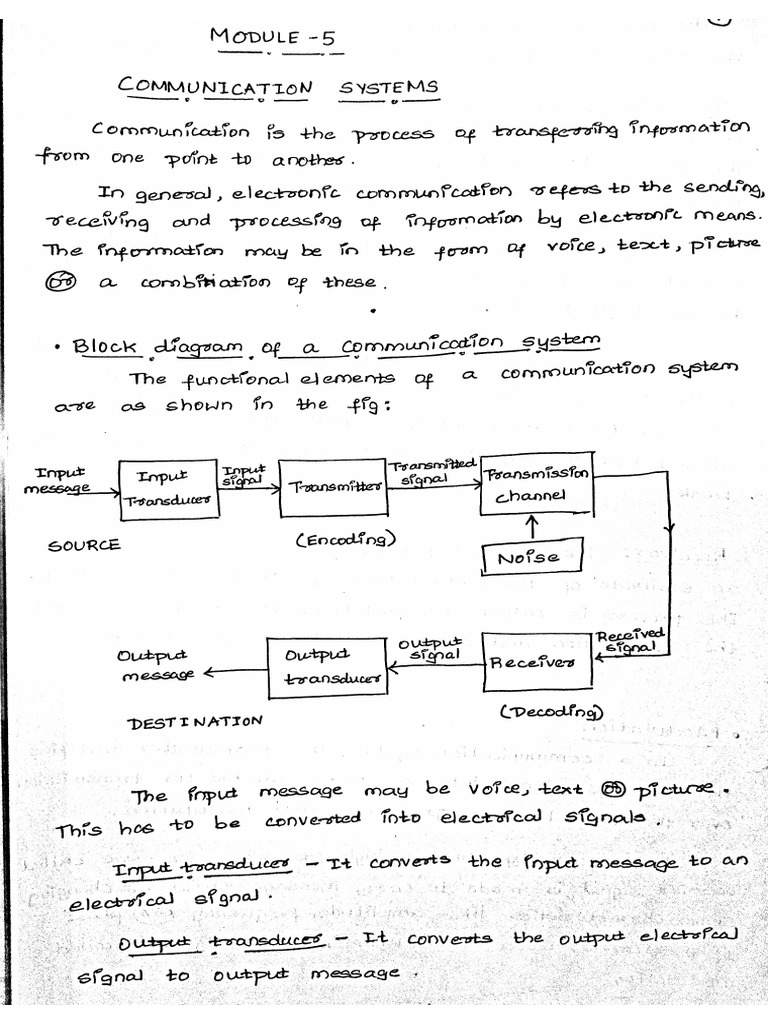 MODULE -5
COMMUNICATION SYSTEMS
Communication is the process of transferring information
from one point to another.
In general, electronic communication refers to the sending,
receiving and processing of information by electronic means.
The information may be in the form of voice, text, picture
or a combination of these.
• Block diagram of a communication system
The functional elements of a communication system
are as shown in the fig:
Input message
Input Transducer
Input signal
Transmitter
Transmitted signal
Transmission channel
SOURCE
(Encoding)
Noise
Output message
Output transducer
Output signal
Receiver
Received signal
DESTINATION
(Decoding)
The input message may be voice, text or picture.
This has to be converted into electrical signals.
Input transducer - It converts the input message to an
electrical signal.
Output transducer - It converts the output electrical
signal to output message.